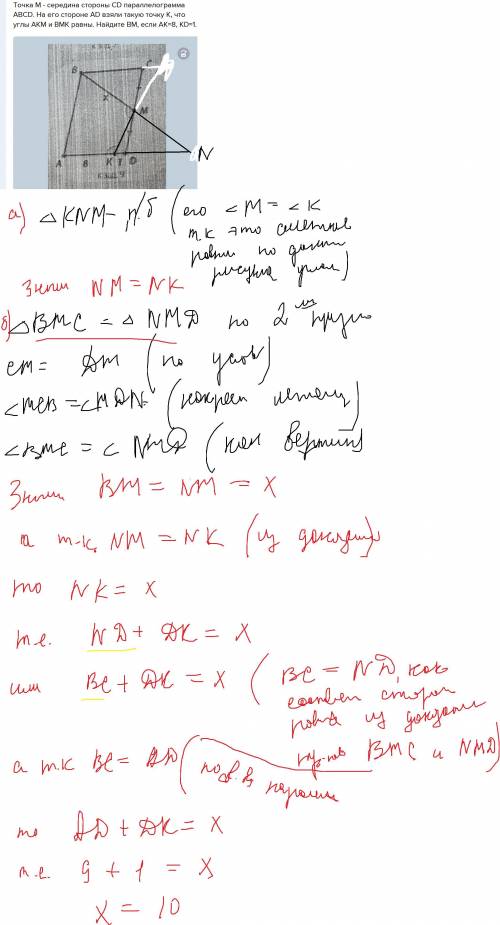 Точка М - середина стороны CD параллелограмма
ABCD. На его стороне AD взяли такую точку K, что
углы АКМ и ВМК равны. Найдите ВМ, если АК=8, KD=1.
B
C
x
M
A
8
K
1
D
N
а) △KNM - р/б (его ∠M = ∠K
т.к это смежные
равны по данным
рисунка углам)
Значит NM = NK
б) △BMC = △NMD по 2
CM = DM (по услов)
∠MCB = ∠MDN (накрест лежащ)
∠BMC = ∠NMD (как вертик)
Значит BM = NM = x
а т-к NM = NK (из доказан)
то NK = x
т.е. ND + DK = x
или BC + DK = x (BC = ND, как
соответ сторон
равн из доказан
тр-ков BMC и NMD)
а т.к BC = AD (по св.в паралл
то AD + DK = x
т.е. 9 + 1 = x
x = 10